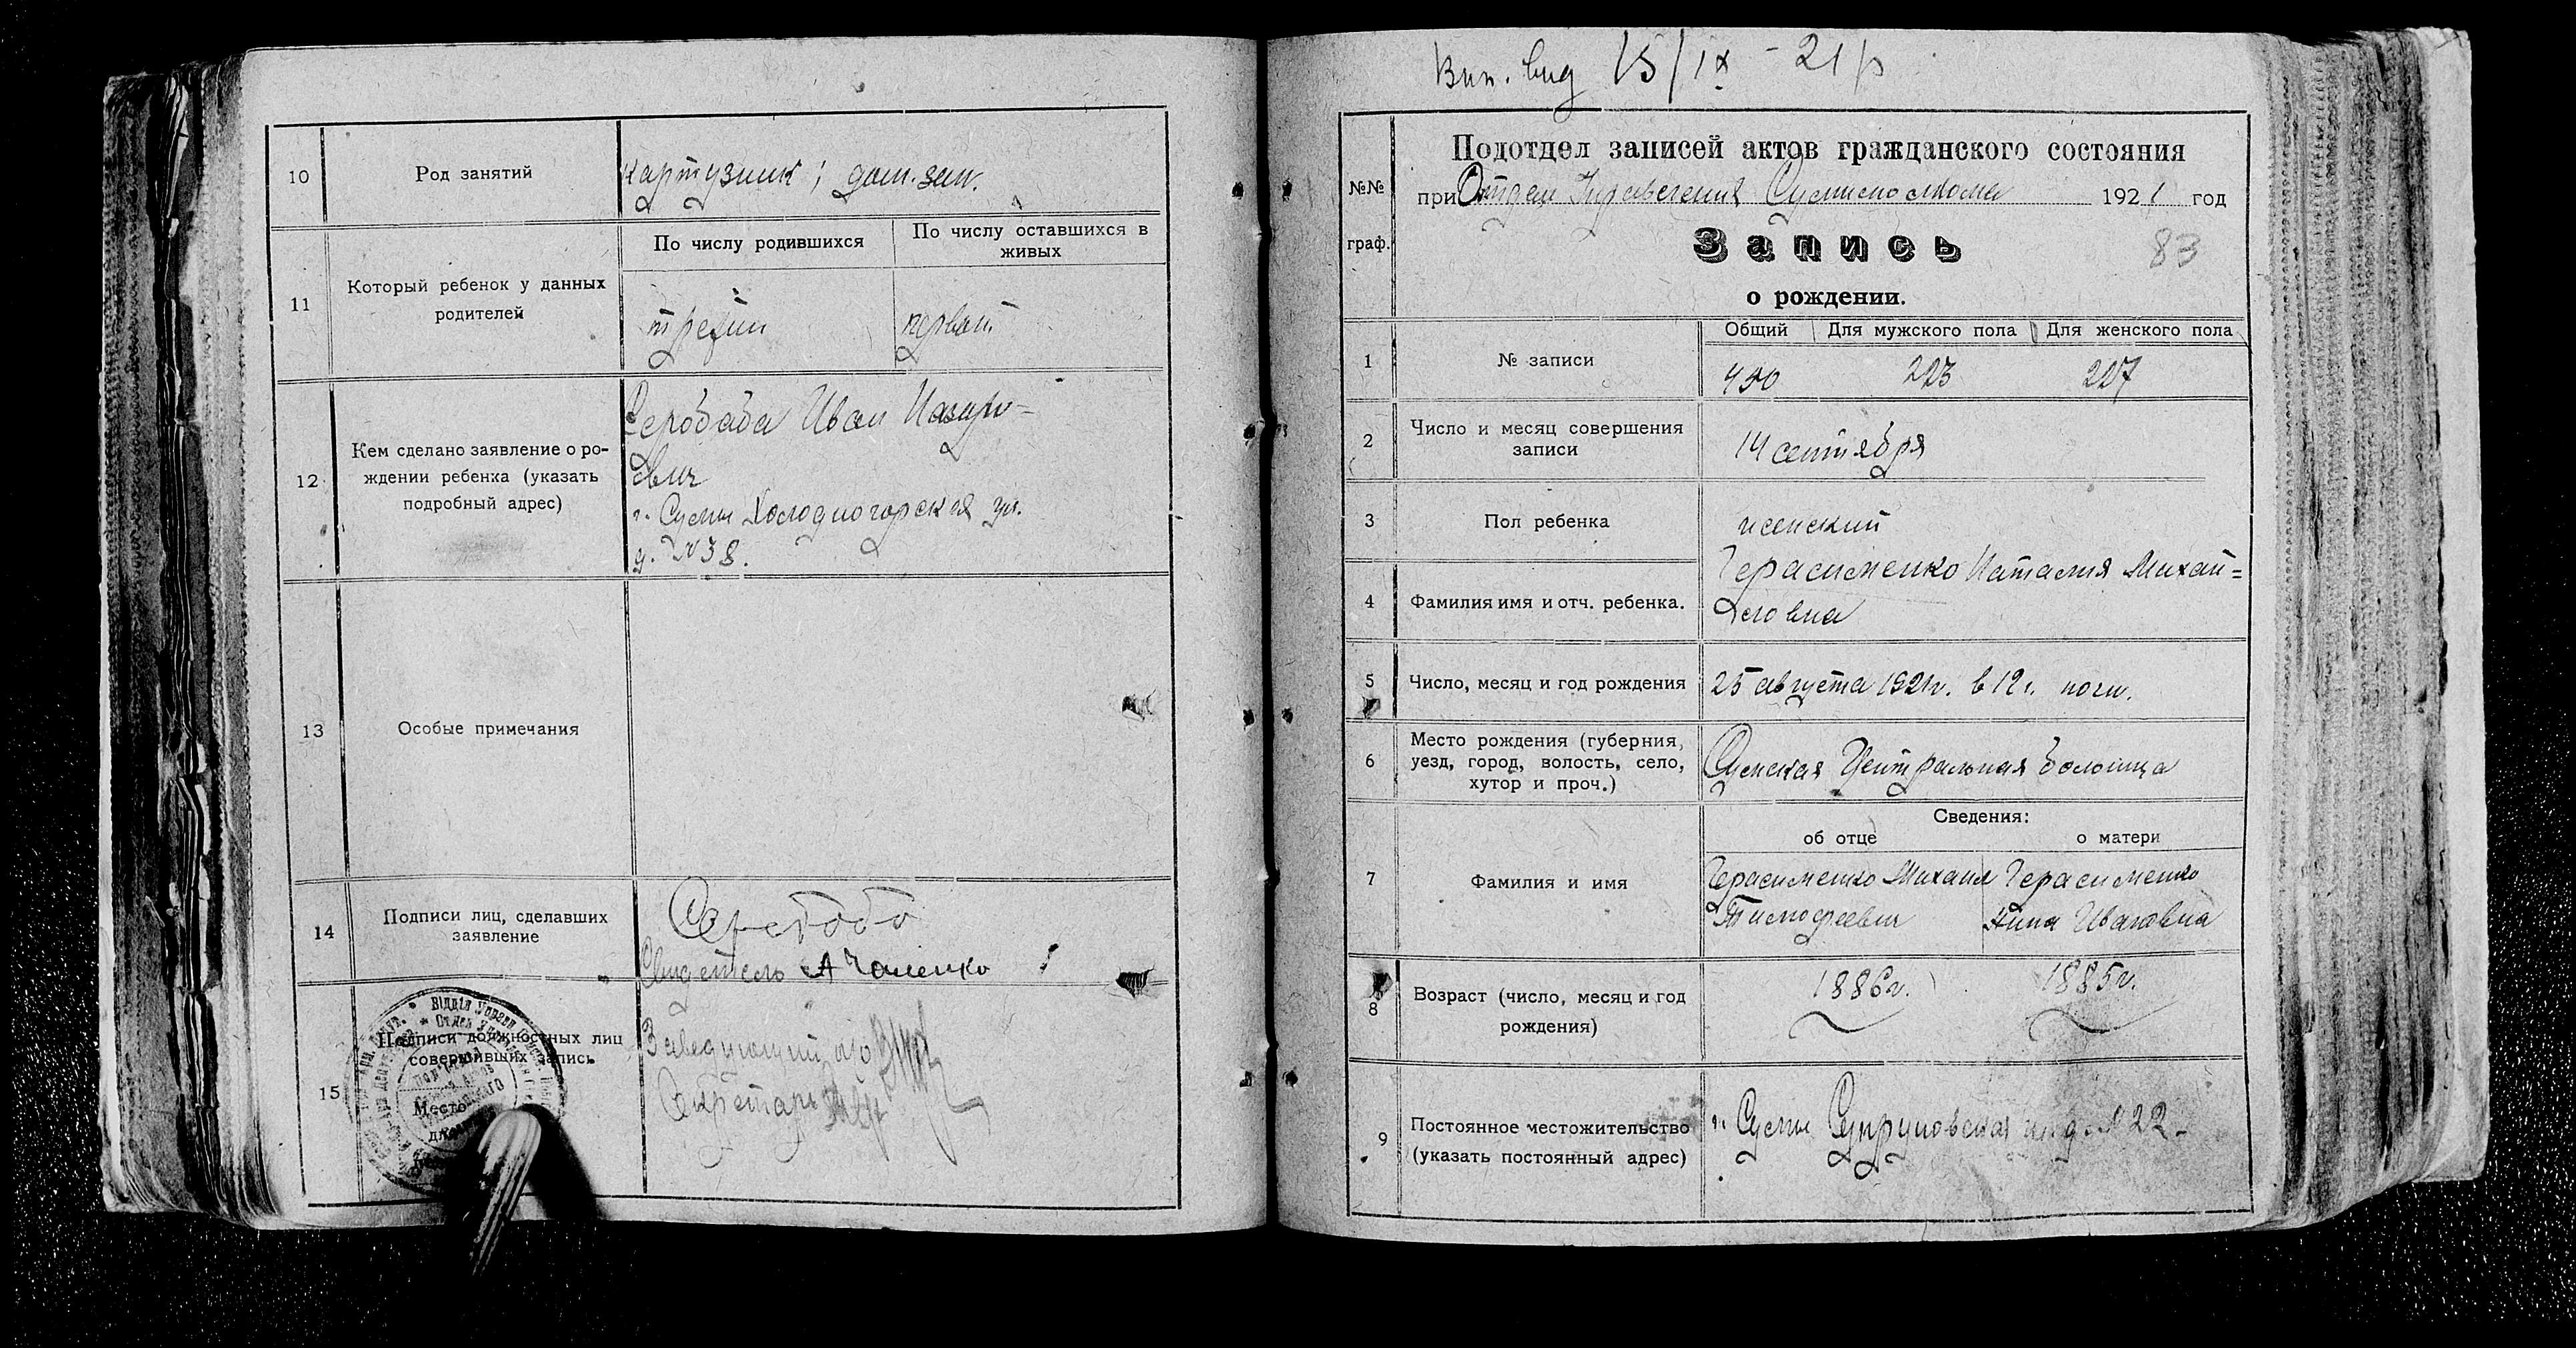 10
Род занятий
картузник; дом. зан.
11
Который ребенок у данных
родителей
По числу родившихся
По числу оставшихся в
живых
третий
первый
12
Кем сделано заявление о ро-
ждении ребенка (указать
подробный адрес)
Серобаба Иван Назаро-
вич
г. Сумы Холодногорская ул.
д. №38.
13
Особые примечания
14
Подписи лиц, сделавших
заявление
Свидетель А
15
Подписи должностных лиц
совершивших запись
Место
Заведующий
Секретарь
15/IX - 21 р
№№
граф.
Подотдел записей актов гражданского состояния
при Отдел Управления Сумисполкома 1921 год
83
Запись
о рождении.
1
№ записи
Общий
Для мужского пола
Для женского пола
450
223
227
2
Число и месяц совершения
записи
14 сентября
3
Пол ребенка
женский
4
Фамилия имя и отч. ребенка.
Герасименко Наталия Михай=
ловна
5
Число, месяц и год рождения
25 августа 1921г. в 12 ч. ночи.
6
Место рождения (губерния,
уезд, город, волость, село,
хутор и проч.)
Сумская Центральная больница
7
Фамилия и имя
Сведения:
об отце
о матери
Герасименко Михаил
Тимофеевич
Герасименко
Нина Ивановна
8
Возраст (число, месяц и год
рождения)
1886г.
1885г.
9
Постоянное местожительство
(указать постоянный адрес)
г. Сумы Супруновская ул. д. № 22